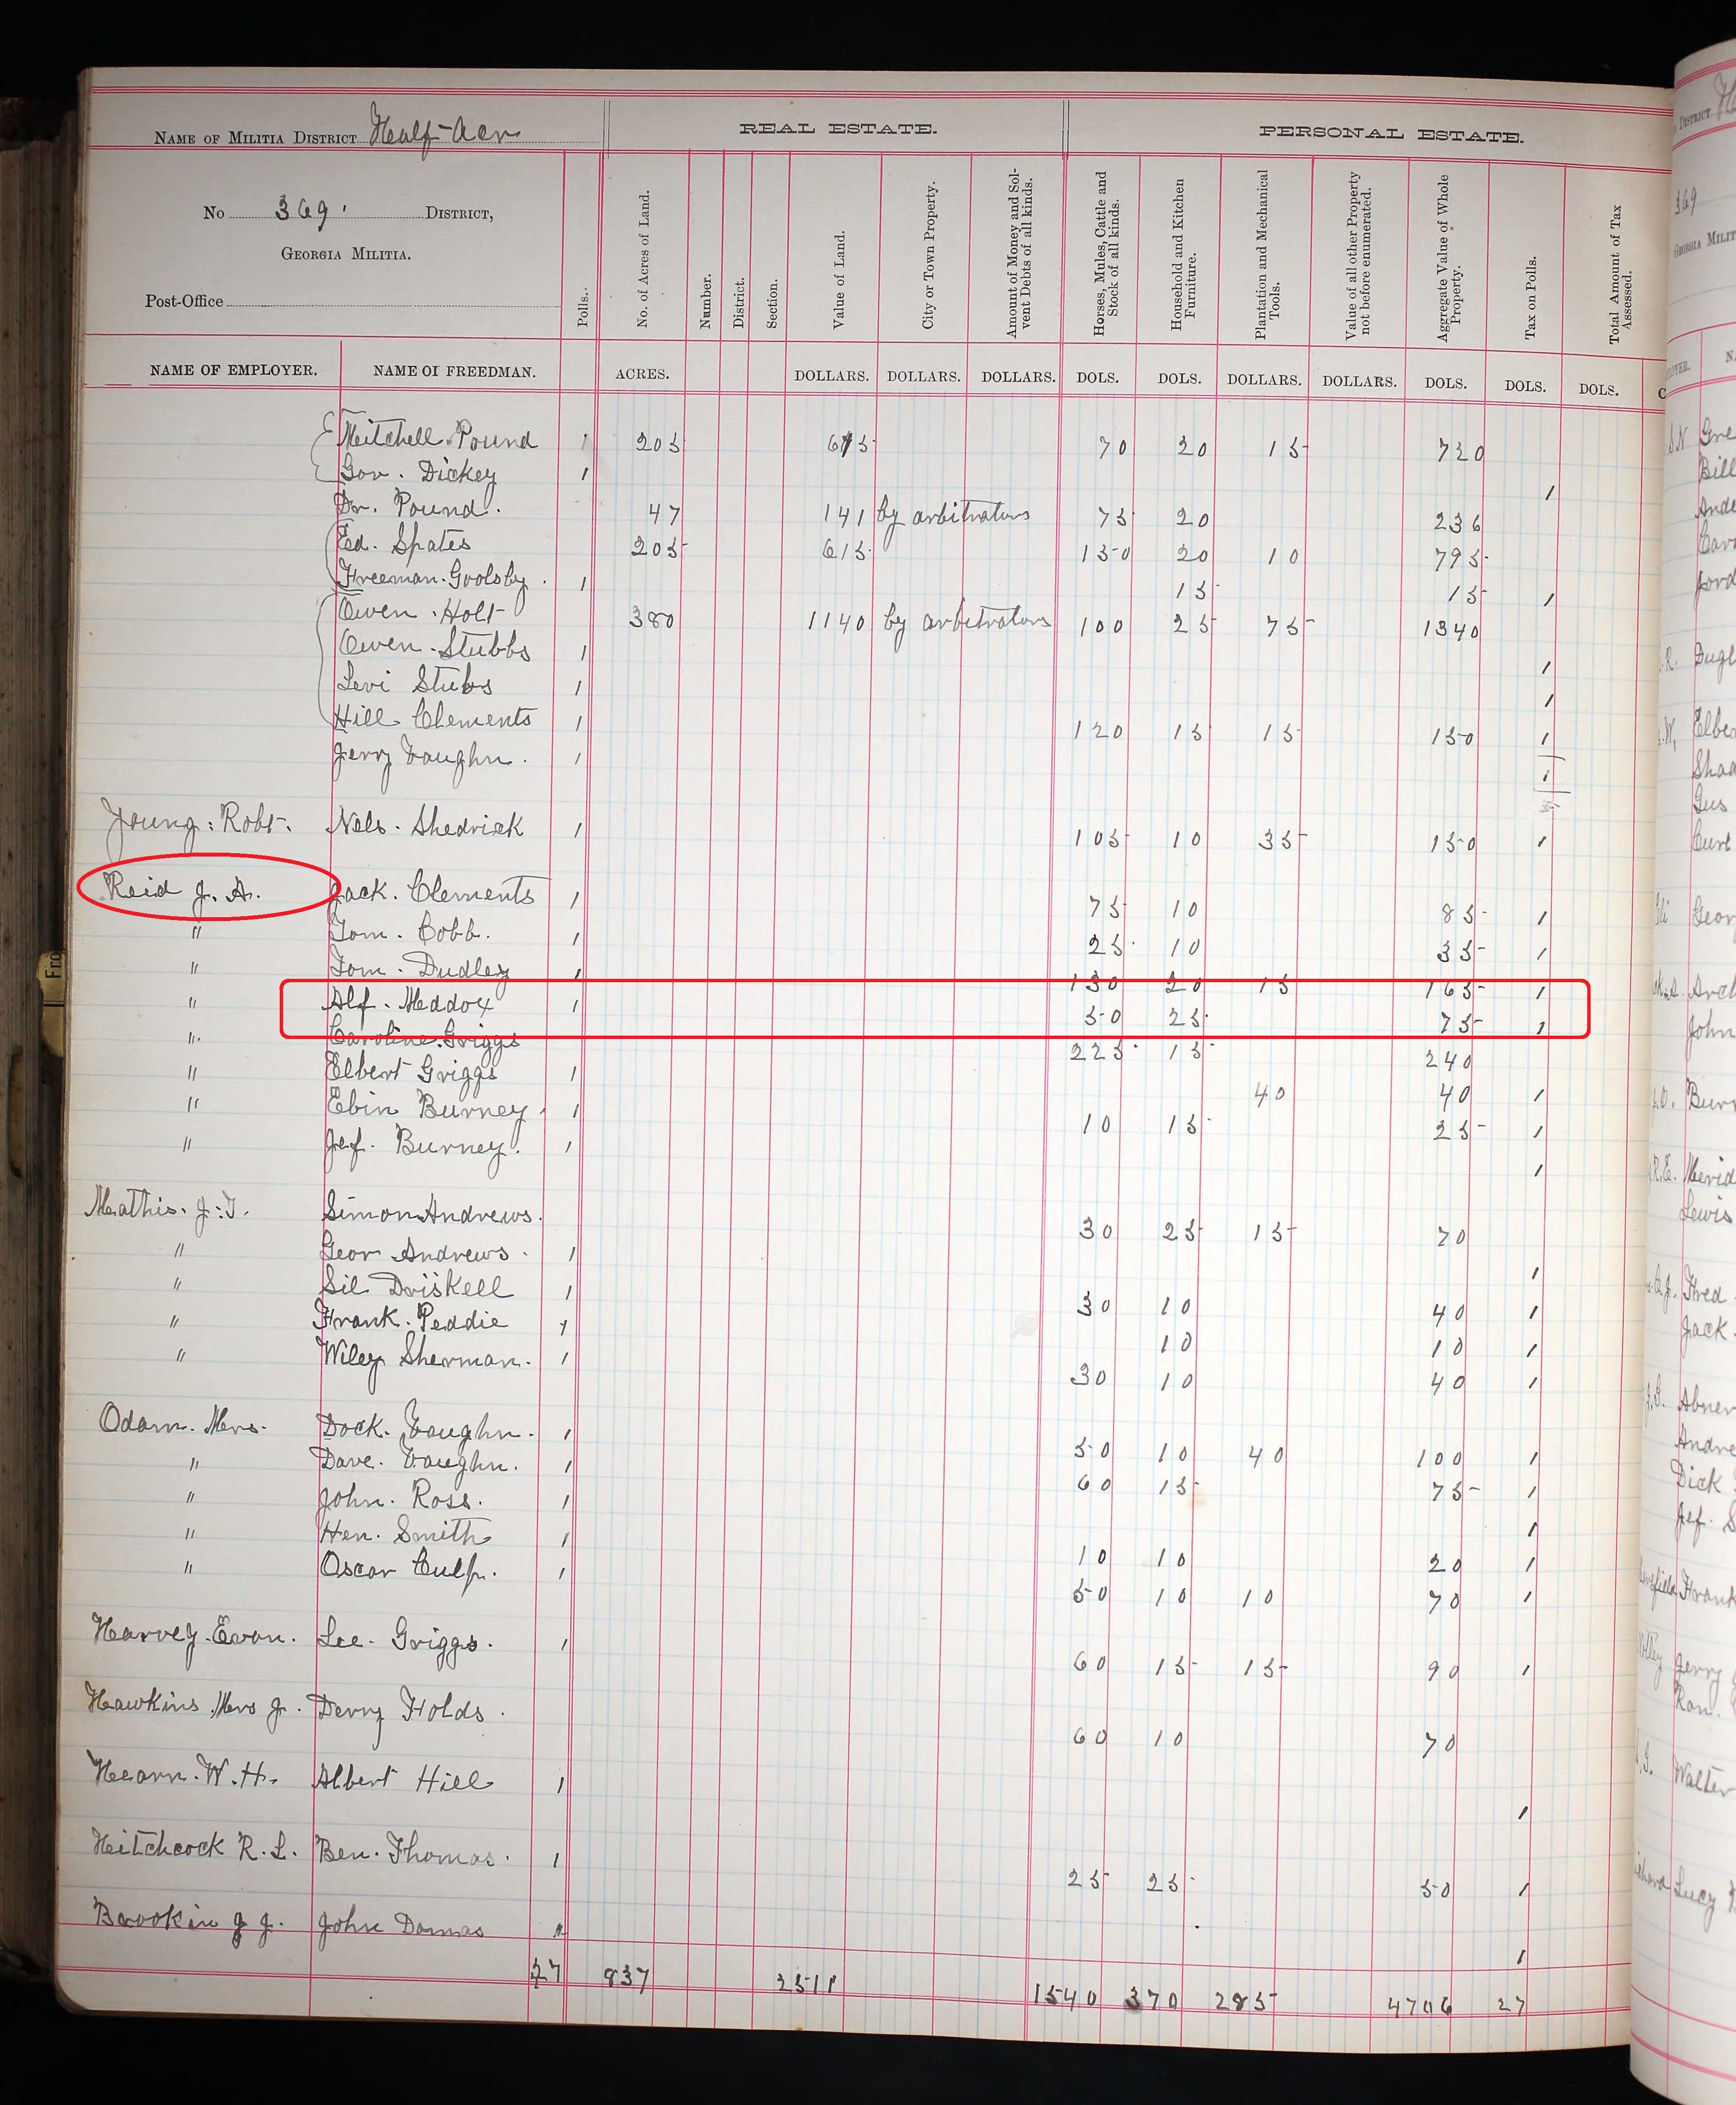 NAME OF MILITIA DISTRICT Half-Acr
REAL ESTATE.
PERSONAL ESTATE.
No 369. DISTRICT,
GEORGIA MILITIA.
Post-Office
Polls.
No. of Acres of Land.
Number.
District.
Section.
Value of Land.
City or Town Property.
Amount of Money and Solvent Debts of all kinds.
Horses, Mules, Cattle and Stock of all kinds.
Household and Kitchen Furniture.
Plantation and Mechanical Tools.
Value of all other Property not before enumerated.
Aggregate Value of Whole Property.
Tax on Polls.
Total Amount of Tax Assessed.
NAME OF EMPLOYER. NAME OF FREEDMAN. ACRES. DOLLARS. DOLLARS. DOLLARS. DOLS. DOLS. DOLLARS. DOLLARS. DOLS. DOLS. DOLS.
Mitchell Pound 1 205 615 70 20 15 720
Gov. Dickey 1 1
Dr. Pound. 47 141 by arbitrators 75 20 236
Ed. Spates 205 615 150 20 10 795
Freeman Goolsby. 1 15 15 1
Owen Holt 380 1140 by arbitrators 100 25 75 1340
Owen Stubbs 1 1
Levi Stubs 1 1
Hill Clements 1 120 15 15 150 1
Jerry Vaughn. 1 1
Young: Robt. Nels. Shedrick 1 105 10 35 150 1
Reid J. A. Jack. Clements 1 75 10 85 1
" Tom. Cobb. 1 25 10 35 1
" Tom. Dudley 1 130 20 15 165 1
" Alf. Maddox 1 50 25 75 1
" Caroline Griggs 225 15 240
" Elbert Griggs 1 40 40 1
" Ebin Burney 1 10 15 25 1
" Jef. Burney. 1 1
Mathis. J. T. Simon Andrews. 30 25 15 70
" Geor Andrews. 1 1
" Sil Driskell 1 30 10 40 1
" Frank. Peddie 1 10 10 1
" Wiley Sherman. 1 30 10 40 1
Odam. Mrs. Dock. Vaughn. 1 50 10 40 100 1
" Dave. Vaughn. 1 60 15 75 1
" John. Ross. 1 1
" Hen. Smith 1 10 10 20 1
" Oscar Culp. 1 50 10 10 70 1
Harvey. Evan. Lee. Griggs. 1 60 15 15 90 1
Hawkins Mrs J. Derry Holds. 60 10 70
Hearn. W. H. Albert Hill 1 1
Hitchcock R. L. Ben. Thomas. 1 25 25 50 1
Brookin J J. John Damas 1 1
27 837 2511 1540 370 285 4706 27
369